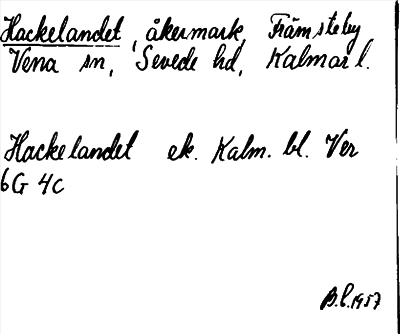 Hackelandet, åkermark, Främsteby
Vena sn, Sevede hd, Kalmar l.
Hackelandet ek. Kalm. bl. Ver
6G 4c
B.L. 1957